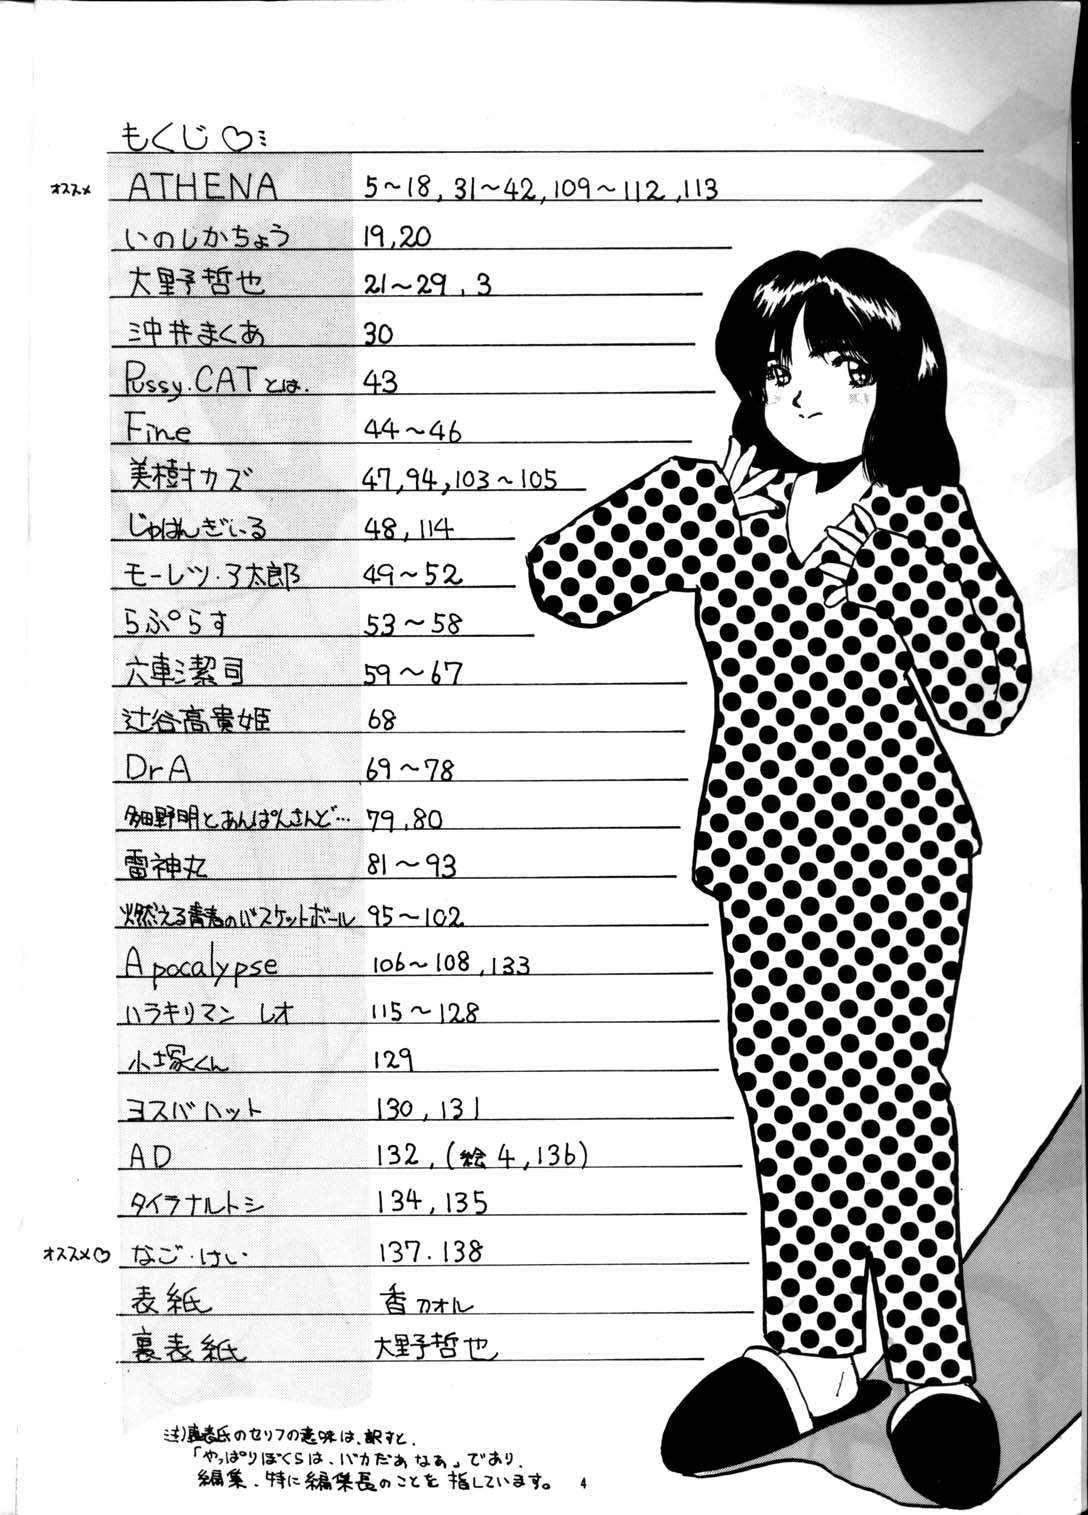 もくじ♡
オススメ ATHENA 5〜18, 31〜42, 109〜112, 113
いのしかちょう 19,20
大野哲也 21〜29, 3
沖井まくあ 30
Pussy.CATとは. 43
Fine 44〜46
美樹カズ 47,94,103〜105
じゅばんぎぃる 48, 114
モーレツ・ア太郎 49〜52
らぷらす 53〜58
六車潔司 59〜67
辻谷高貴姫 68
DrA 69〜78
畑野明とあんぱんさんど… 79,80
雷神丸 81〜93
燃える青春のバスケットボール 95〜102
Apocalypse 106〜108, 133
ハラキリマン レオ 115〜128
小塚くん 129
ヨスバハット 130, 131
AD 132, (絵 4, 136)
タイラナルトシ 134, 135
オススメ♡ なご・けい 137.138
表紙 香カオル
裏表紙 大野哲也
注)裏表氏のセリフの意味は、訳すと、
「やっぱりぼくらは、バカだぁなぁ」であり、
編集、特に編集長のことを指しています。 4